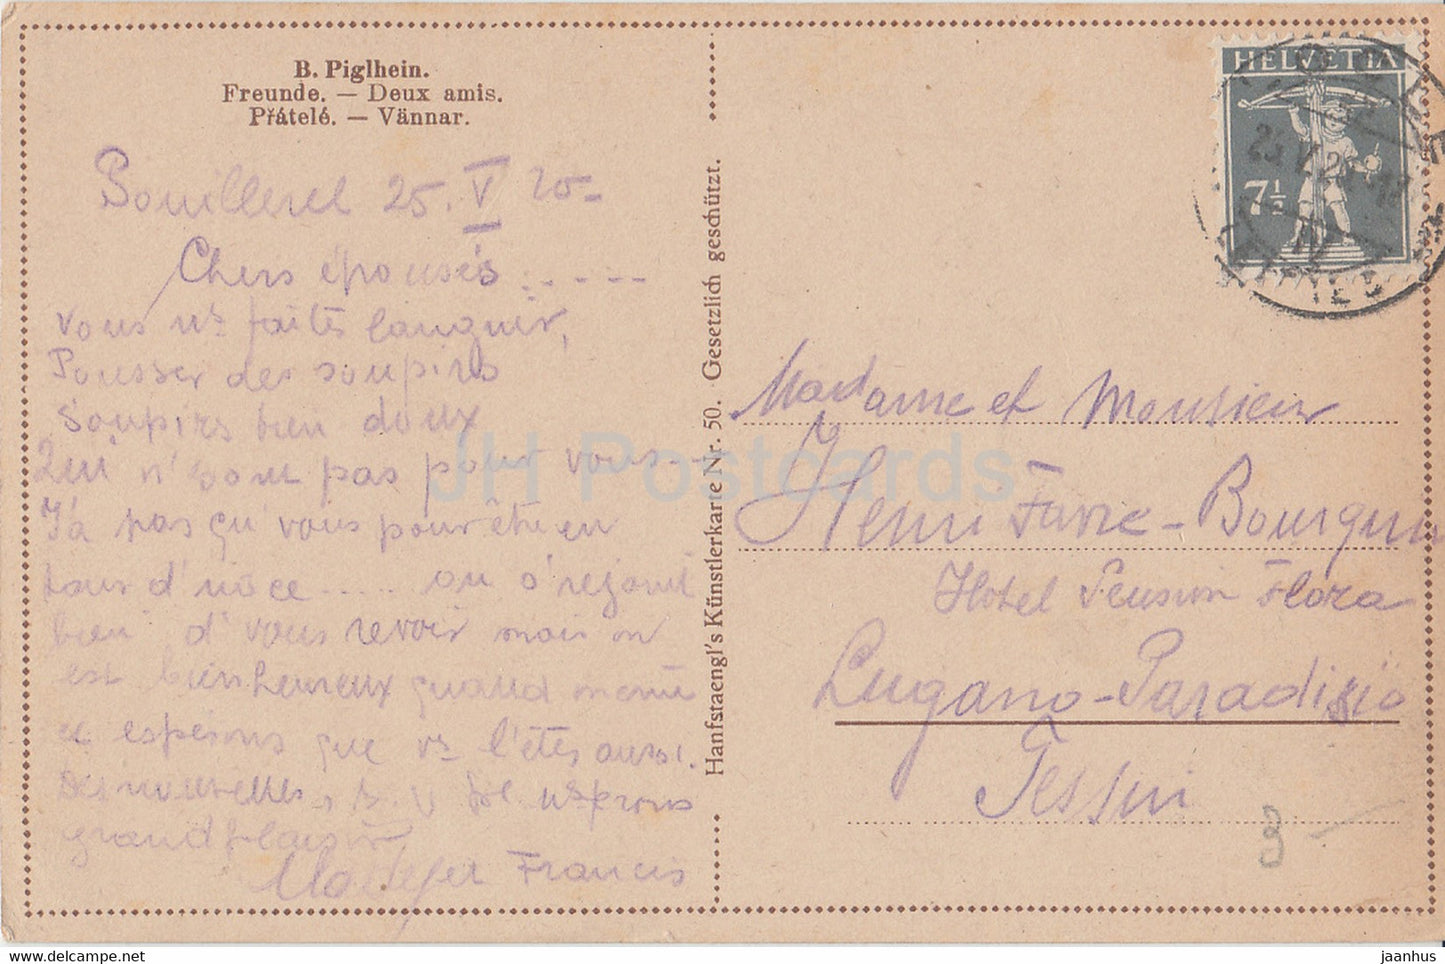 B. Piglhein.
Freunde. — Deux amis.
Přátelé. — Vännar.
Pouillerel 25. V 20-
Chers épousés .....
vous ns faites languir,
Pousser des soupirs
Soupirs bien doux
Qui n'sont pas pour vous...
Y'a pas qu'vous pour être en
tour d'noce ..... on s'rejouit
bien d'vous revoir mais on
est bienheureux quand même
et espérons que vs l'êtes aussi.
Des nouvelles, s. v. pl. ns ferons
grand plaisir
Francis
Hanfstaengl's Künstlerkarte Nr. 50. Gesetzlich geschützt.
HELVETIA
7½
25.V.20
Madame et Monsieur
Henri Favre-Bourquin
Hôtel Pension Flora
Lugano-Paradisio
Tessin
3 -
JH Postcards
www.jaanhus.com
jaanhus